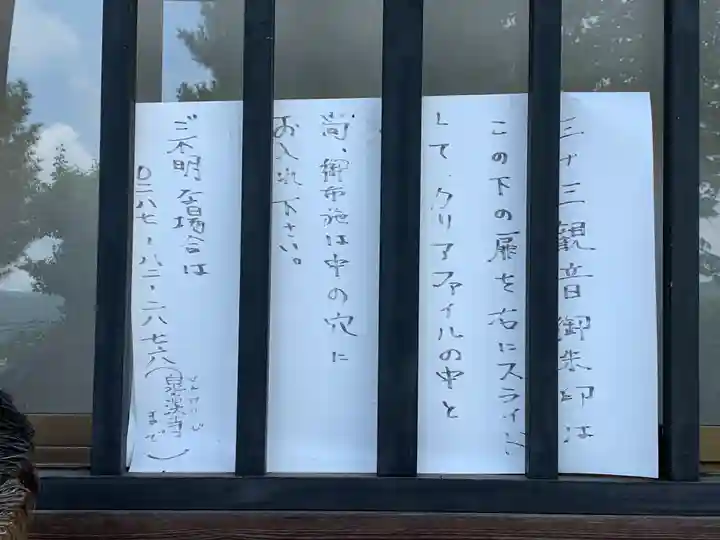 三十三観音御朱印は
この下の扉を右にスライド
して、クリアファイルの中と
尚、御布施は中の穴に
お入れ下さい。
ご不明な場合は
〇二八七-八二-二八七六(泉溪寺まで)
せんけいじ